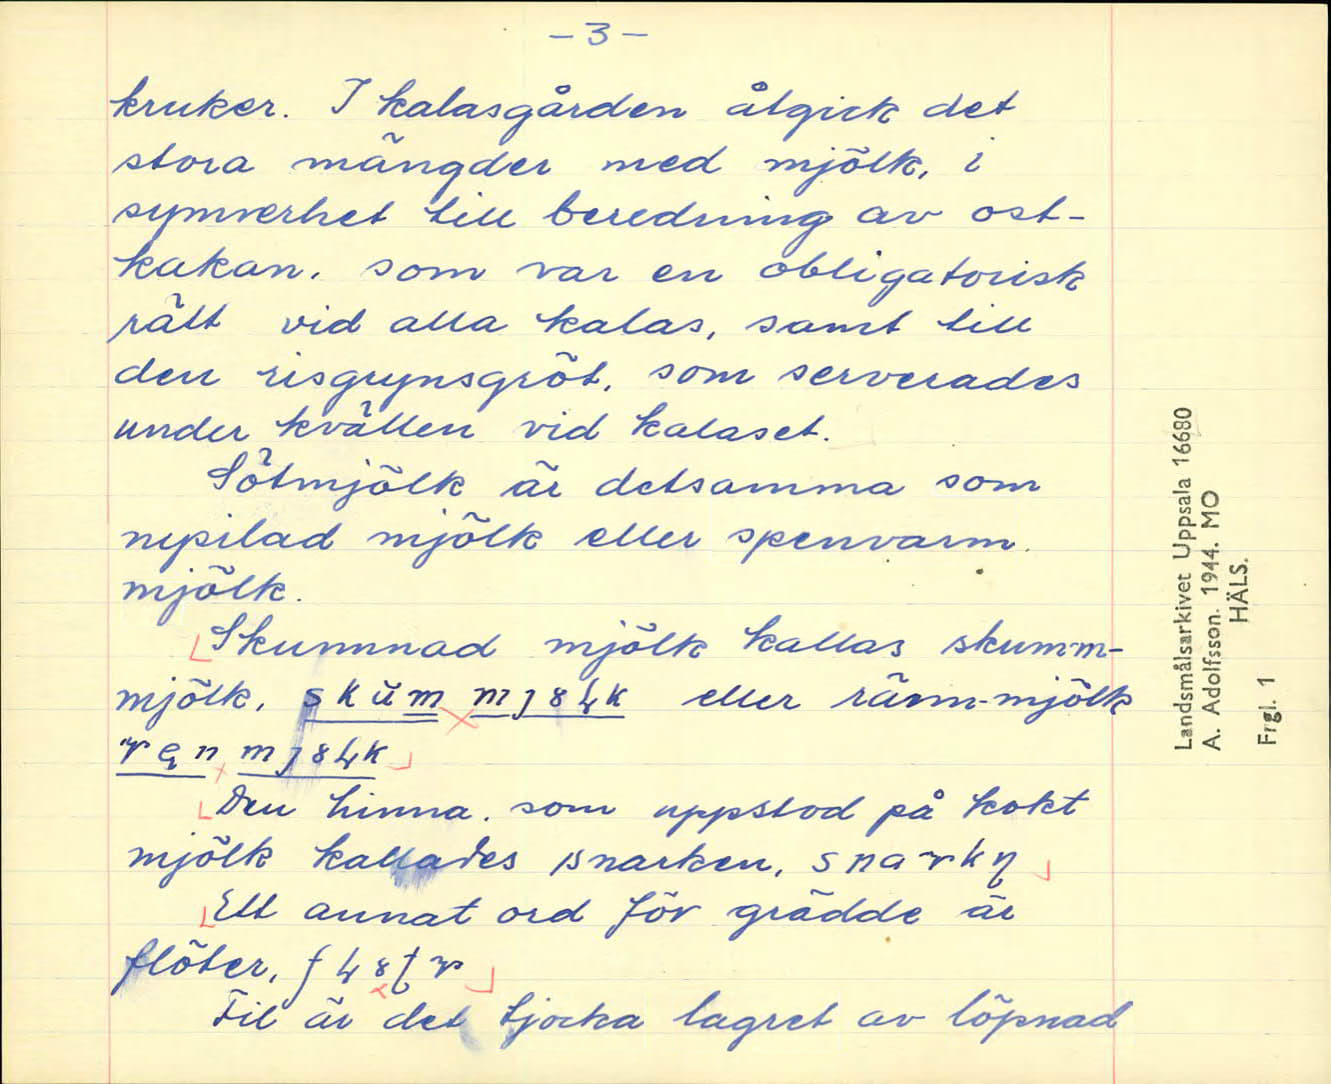 - 3 -
kruker. I kalasgården åtgick det
stora mängder med mjölk, i
synnerhet till beredning av ost-
kakan, som var en obligatorisk
rätt vid alla kalas, samt till
den risgrynsgröt, som serverades
under kvällen vid kalaset.
Sötmjölk är detsamma som
nysilad mjölk eller spenvarm
mjölk.
Skummad mjölk kallas skumm-
mjölk, eller ränn-mjölk
Den hinna, som uppstod på kokt
mjölk kallades snarken,
Ett annat ord för grädde är
flöter,
Fil är det tjocka lagret av löpnad
Landsmålsarkivet Uppsala 16680
A. Adolfsson. 1944. MO
HÄLS.
Frgl. 1